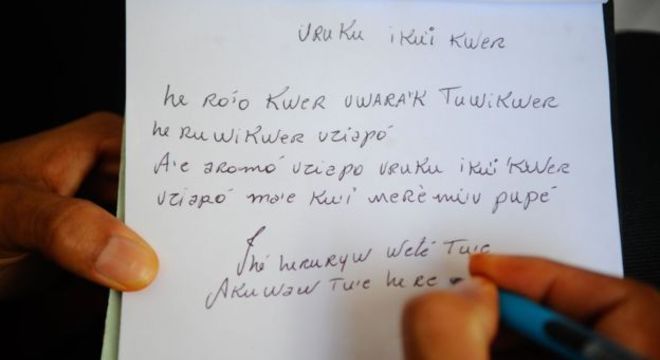 uruku iku'i kwer
he ro'o kwer uwara'k tuwikwer
he ruwikwer uziapó
A'e aromó uziapo uruku iku'i 'kwer
uziapó ma'e ku'i merèmi'u pupé
Ihé hururyw weté tu'e
Akuwaw tu'e here